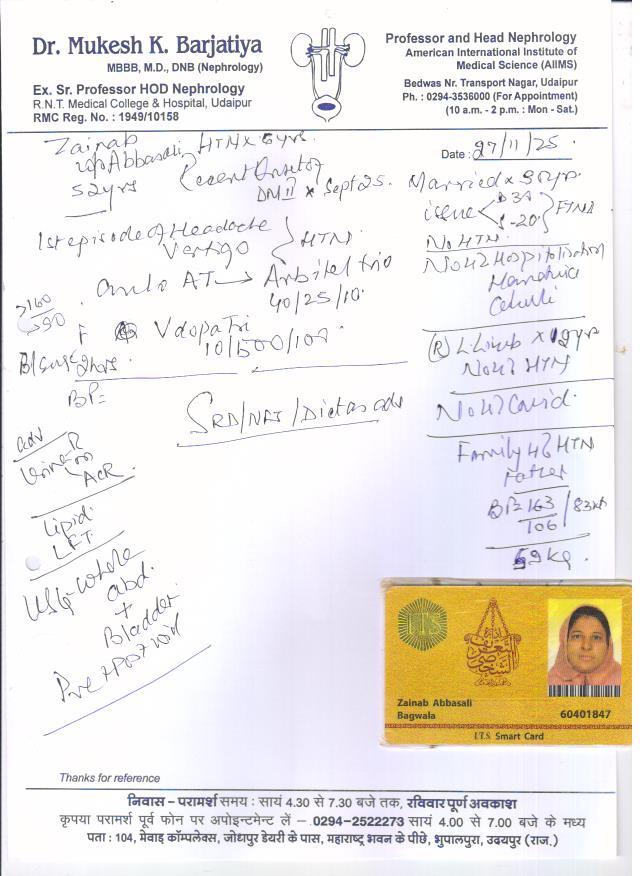 Dr. Mukesh K. Barjatiya
MBBB, M.D., DNB (Nephrology)
Ex. Sr. Professor HOD Nephrology
R.N.T. Medical College & Hospital, Udaipur
RMC Reg. No. : 1949/10158
Professor and Head Nephrology
American International Institute of
Medical Science (AIIMS)
Bedwas Nr. Transport Nagar, Udaipur
Ph. : 0294-3536000 (For Appointment)
(10 a.m. - 2 p.m. : Mon - Sat.)
Date : 27/11/25.
Zainab
Abbasali
52yrs
HTN x 6yrs.
Recent Onset of
DM II x Sept 25.
Married x 30yrs.
issue
FTND
1st episode of Headache
Vertigo
HTN
No HTN.
No H/o Hospitalisation
AT → Arbitel trio
40/25/10
>160
>90
10/500/100
2hrs.
BP=
(R) L. Limb x
No H/o HTN
SRD/NAS/Diet as adv
No H/o Covid.
adv
Urine R
ACR.
Family H/o HTN
Father
BP= 163
106
69kg.
Lipid
LFT.
USG-whole
abd.
+
Bladder
Pre + Post void
Zainab Abbasali
Bagwala
60401847
I.T.S. Smart Card
Thanks for reference
निवास – परामर्श समय : सायं 4.30 से 7.30 बजे तक, रविवार पूर्ण अवकाश
कृपया परामर्श पूर्व फोन पर अपोइन्टमेन्ट लें – 0294-2522273 सायं 4.00 से 7.00 बजे के मध्य
पता : 104, मेवाड़ कॉम्पलेक्स, जोधपुर डेयरी के पास, महाराष्ट्र भवन के पीछे, भुपालपुरा, उदयपुर (राज.)